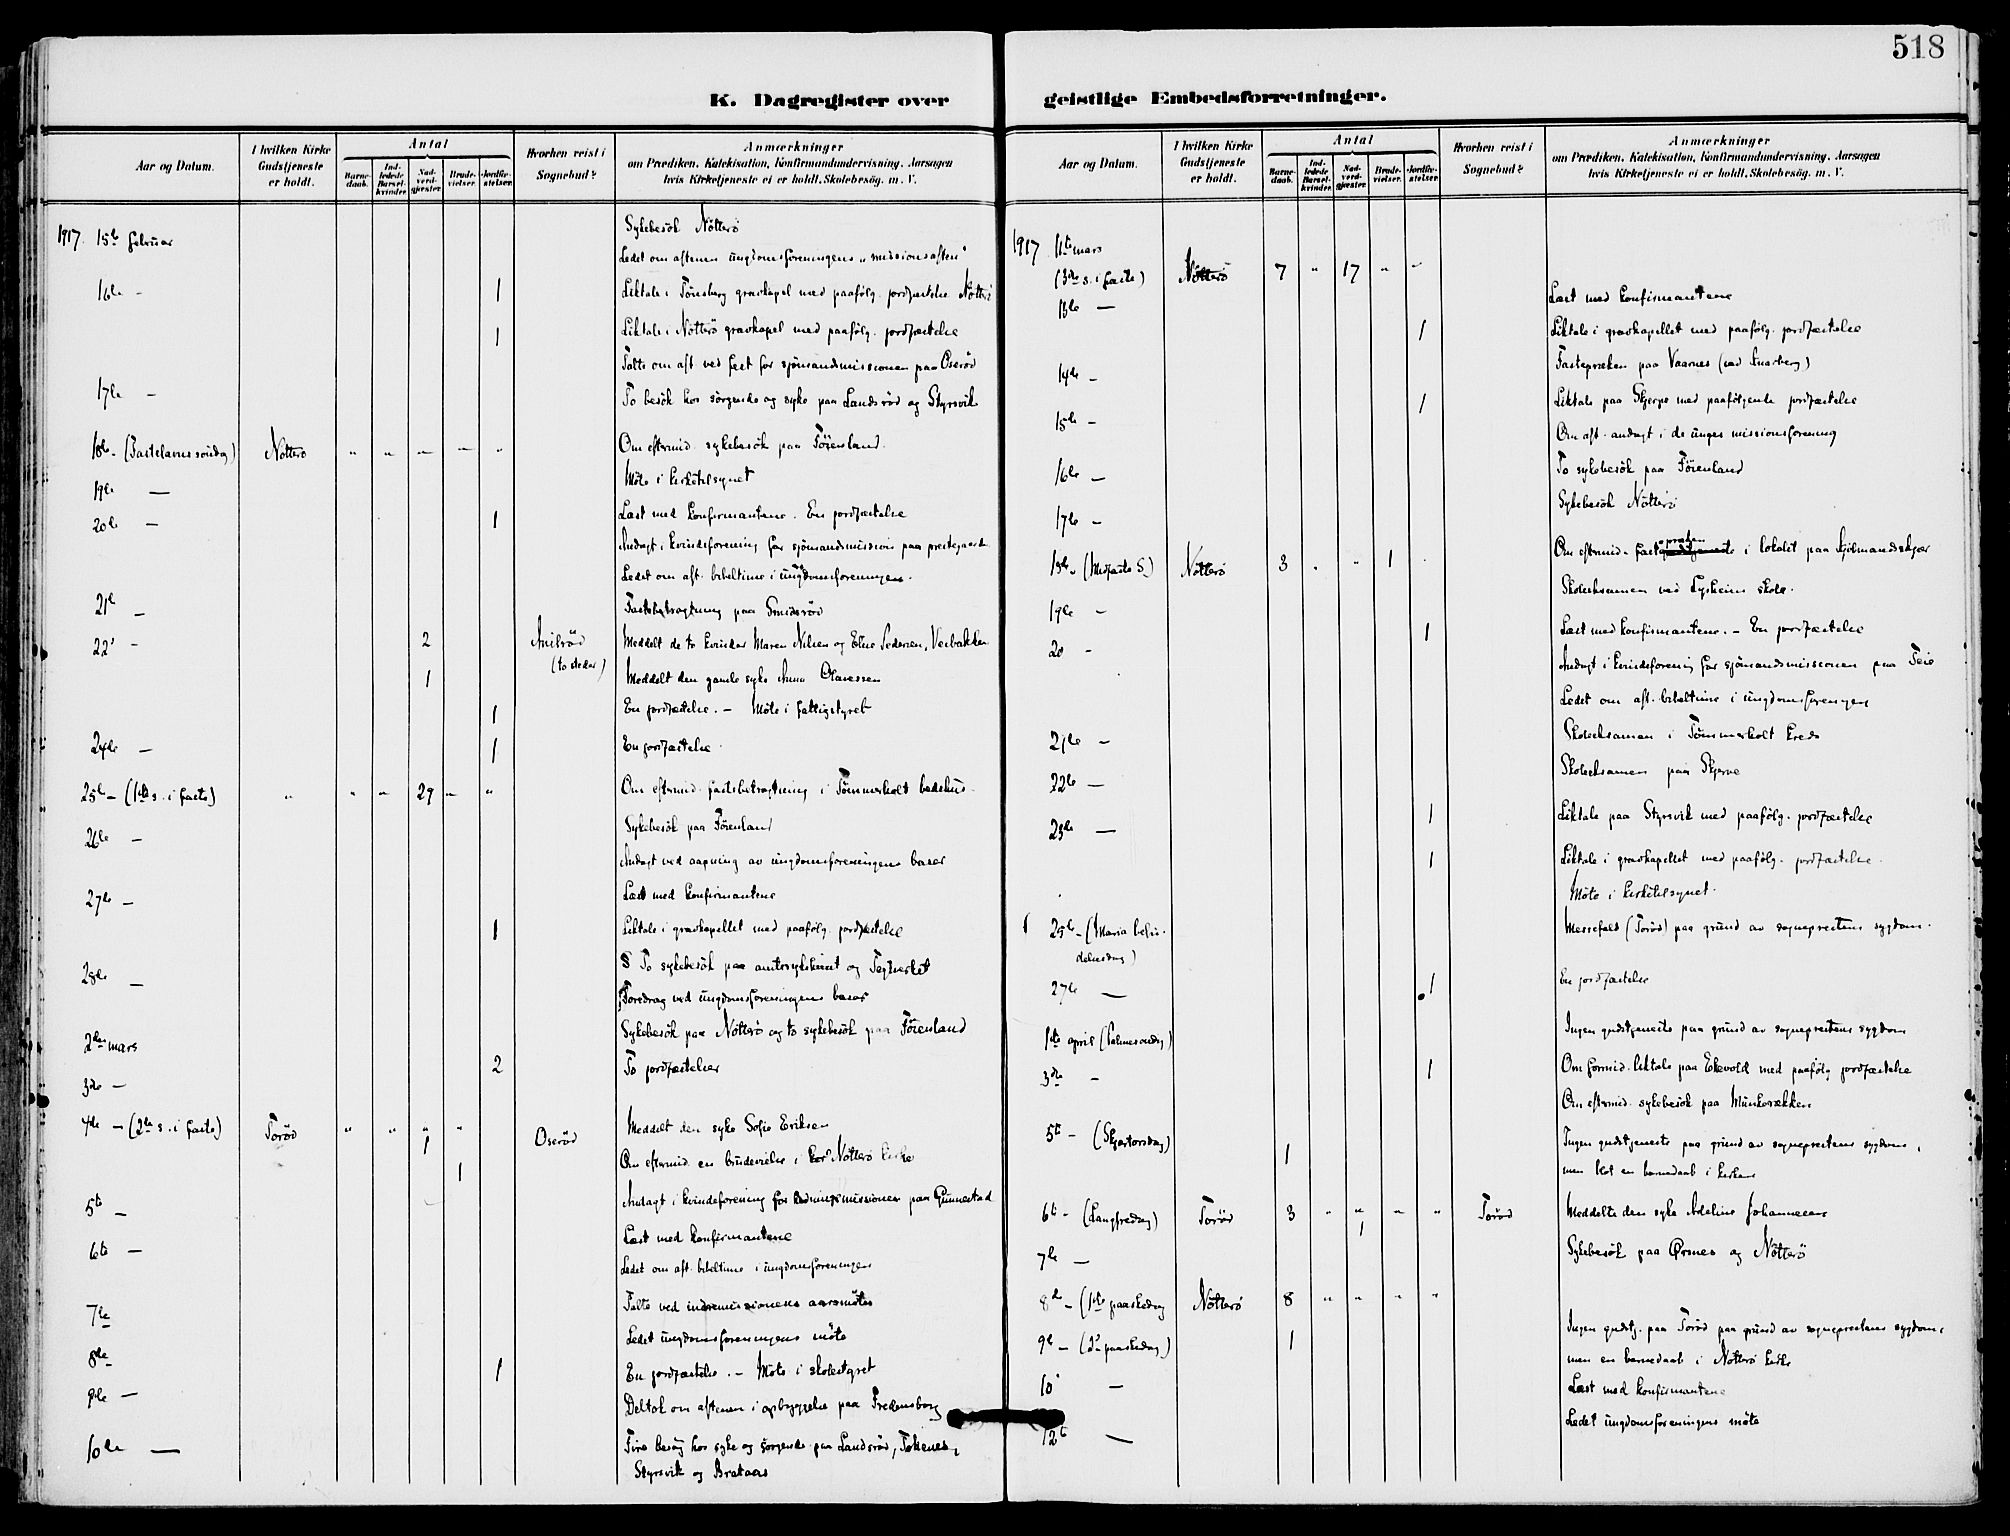 518
K. Dagregister over geistlige Embedsforretninger.
Aar og Datum.
I hvilken Kirke Gudstjeneste er holdt.
Antal
Barnedaab.
Indledede Barselkvinder
Nadverdgjester
Brudevielser
Jordfæstelser
Hvorhen reist i Sognebud?
Anmærkninger
om Prædiken, Katekisation, Konfirmandundervisning, Aarsagen
hvis Kirketjeneste ei er holdt, Skolebesøg. m. V.
1917. 15de februar Sykebesök Nötterö
Ledet om aftenen ungdomsforeningens "missionsaften"
16de - 1 Liktale i Tönsberg gravkapel med paafölg. jordfæstelse Nötterö
1 Liktale i Nötterö gravkapel med paafölg. jordfæstelse
Talte om aft. ved fest for sjömandsmissionen paa Oseröd
17de - To besök hos sörgende og syke paa Landsröd og Styrsvik
18de - (Fastelavnssöndag) Nötterö " " " " " Om eftermid. sykebesök paa Föienland.
19de - Möte i kirketilsynet
20de - 1 Læst med konfirmantene. En jordfæstelse
Andagt i kvindeforening for sjömandsmission paa prestegaarden
Ledet om aft. bibeltime i ungdomsforeningen.
21de - Fastebetragtning paa Smidsröd
22' - 2 (to steder) Meddelt de to kvinder Maren Nilsen og Pedersen,
1 Meddelt den gamle syke Anna Olavessen
1 En jordfæstelse. - Möte i fattigstyret
24de - 1 En jordfæstelse.
25de - (1ste s. i faste) " " " 29 " " Om eftermid. fastebetragtning i Tömmerholt bedehus.
26de - Sykebesök paa Föienland
Andagt ved aapning av ungdomsforeningens basar
27de - Læst med konfirmantene
1 Liktale i gravkapellet med paafölg. jordfæstelse
28de - To sykebesök paa amtssykehuset og Teglverket
Foredrag ved ungdomsforeningens basar
2den mars Sykebesök paa Nötterö og to sykebesök paa Föienland
3de - 2 To jordfæstelser
4de - (2de s. i faste) Toröd " " " " Oseröd
1 Meddelt den syke Sofie Eriksen
1 Om eftermid. en brudevielse i Nötterö kirke
5te - Andagt i kvindeforening for missionen paa Gunnestad
6te - Læst med konfirmantene
Ledet om aft. bibeltime i ungdomsforeningen
7de Talte ved indremissionens aarsmöte
Ledet ungdomsforeningens möte
8de 1 En jordfæstelse. - Möte i skolestyret
9de - Deltok om aftenen i opbyggelse paa Fredensborg
10de - Fire besög hos syke og sörgende paa Landsröd, Tokenes,
Styrsvik og Brataas
Aar og Datum.
I hvilken Kirke Gudstjeneste er holdt.
Antal
Barnedaab.
Indledede Barselkvinder
Nadverdgjester
Brudevielser
Jordfæstelser
Hvorhen reist i Sognebud?
Anmærkninger
om Prædiken, Katekisation, Konfirmandundervisning, Aarsagen
hvis Kirketjeneste ei er holdt, Skolebesøg. m. V.
1917 11te mars
(3de s. i faste) Nötterö 7 " 17 " "
13de - Læst med konfirmantene
1 Liktale i gravkapellet med paafölg. jordfæstelse
14de - Fastepræken paa Vaarnes (ved Snarberg)
15de - 1 Liktale paa Skjerpe med paafölgende jordfæstelse
Om aft. andagt i de unges missionsforening
16de - To sykebesök paa Föienland
17de - Sykebesök Nötterö
18de. (Midfaste S.) Nötterö 3 " " 1 Om eftermid. fastepræken i lokalet paa Skjelmandskjær
19de - Skoleeksamen ved Lysheim skole.
20 - 1 Læst med konfirmantene. - En jordfæstelse
Andagt i kvindeforening for sjömandsmissionen paa Teie
Ledet om aft. bibeltime i ungdomsforeningen
21de - Skoleeksamen i Tömmerholt kreds
22de - Skoleeksamen paa Skjerve
23de - 1 Liktale paa Styrsvik med paafölg. jordfæstelse
1 Liktale i gravkapellet med paafölg. jordfæstelse.
Möte i kirketilsynet.
25de - (Maria bebudelsesdag) Messefald (Toröd) paa grund av sogneprestens sygdom.
27de - 1 En jordfæstelse
1ste april (Palmesöndag) Ingen gudstjeneste paa grund av sogneprestens sygdom
3de - 1 Om formid. liktale paa Ekevold med paafölg jordfæstelse
Om eftermid. sykebesök paa Munkerekken
5te - (Skjærtorsdag) Ingen gudstjeneste paa grund av sogneprestens sygdom,
1 men blot en barnedaab i kirken
6te - (Langfredag) Toröd 3 " " " " Toröd Meddelte den syke Adeline Johannesen
1
7de - Sykebesök paa Ormes og Nötterö
8de - (1ste paaskedag Nötterö 8 " " " "
9de - (2' paaskedag) 1 Ingen gudstj. paa Toröd paa grund av sogneprestens sygdom,
men en barnedaab i Nötterö kirke
10' - Læst med konfirmantene
12te - Ledet ungdomsforeningens möte